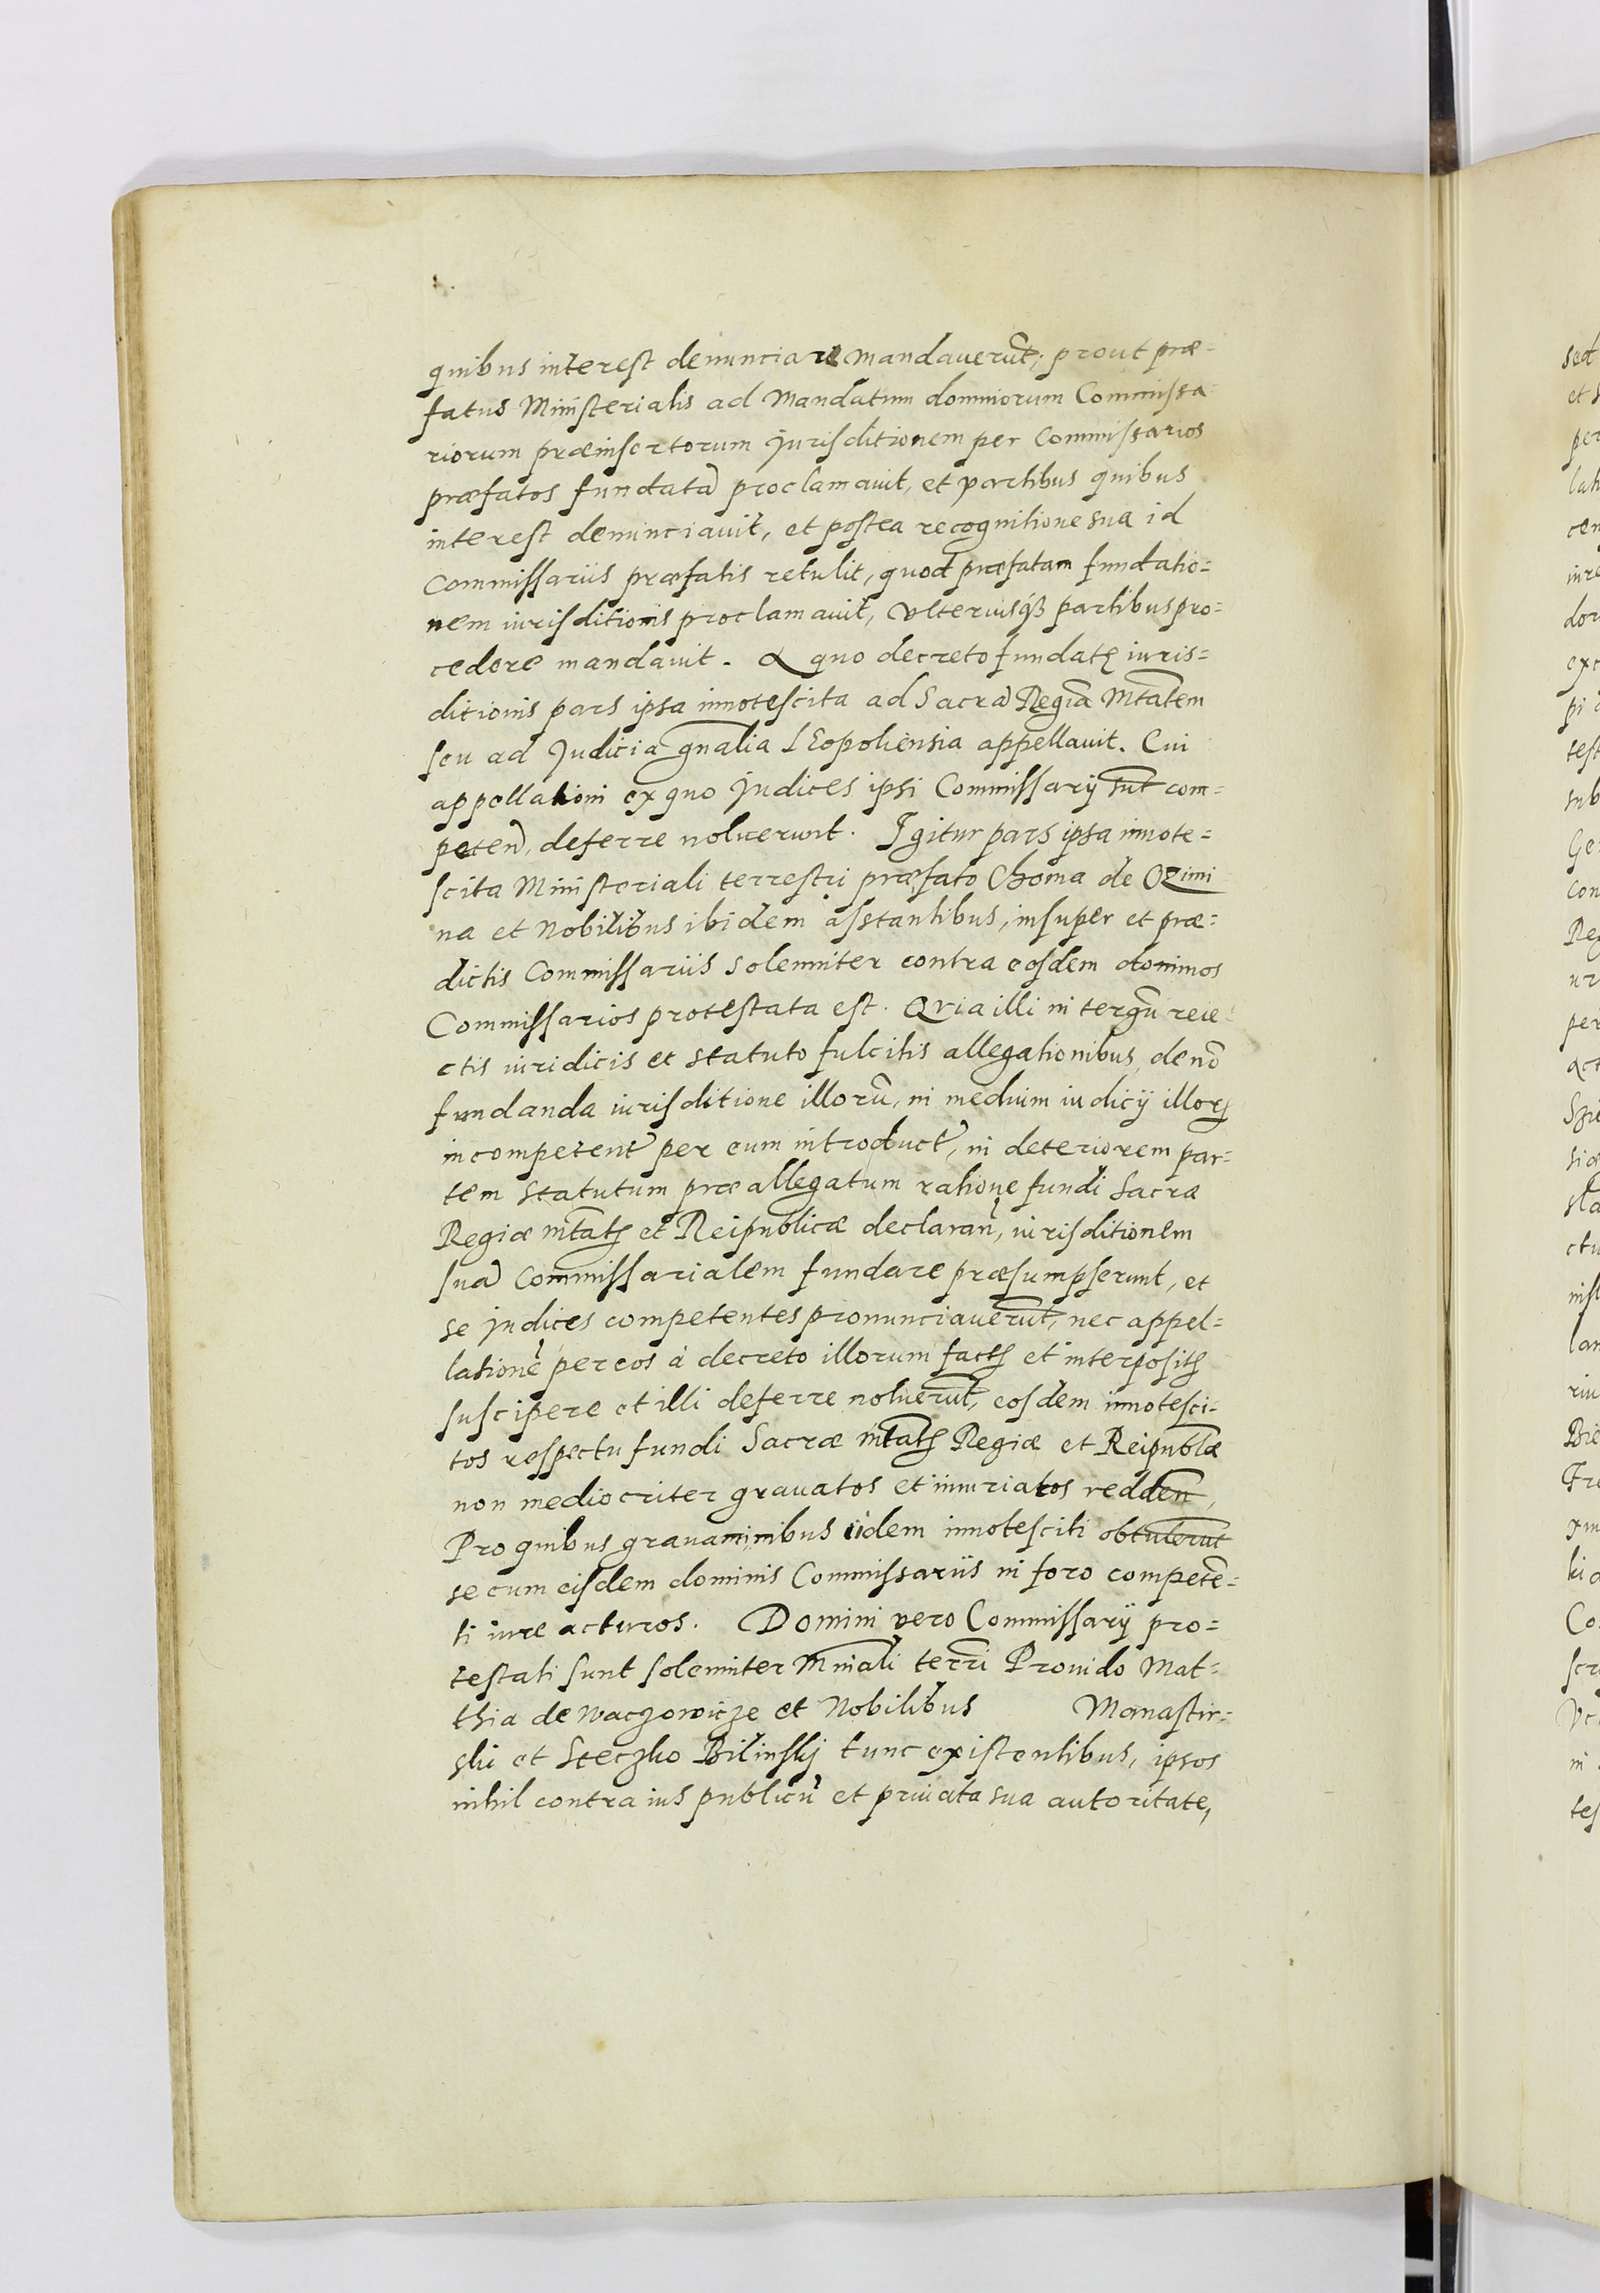 quibus interest denunciare mandauerũt; prout præ=
fatus Ministerialis ad Mandatum dominorum Commissa=
riorum præinsertorum Jurisditionem per Commissarios
præfatos fundatã proclamauit, et partibus quibus
interest denunciauit, et postea recognitione sua id
Commissariis præfatis retulit, quod præfatam fundatio=
nem iurisditionis proclamauit, vlteriusq3 partibus pro=
cedere mandauit. A quo decreto fundatę iuris=
ditionis pars ipsa innotescita ad Sacrã Regiã Mtatem
seu ad Judicia gnalia LEopoliensia appellauit. Cui
appellationi ex quo Judices ipsi Commissarij sut com=
peten, deferre noluerunt. Igitur pars ipsa innote=
scita Ministeriali terrestri præfato Choma de Ozimi
na et Nobilibus ibidem astantibus, insuper et præ=
dictis Commissariis solenniter contra eosdem dominos
Commissarios protestata est. Quia illi in tergũ reie=
ctis iuridicis et statuto fulcitis allegationibus, de nõ
fundanda iurisditione illorũ, in medium iudicij illorꝝ
incompetent per eum introduct, in deteriorem par=
tem statutum præallegatum ratione fundi Sacræ
Regiæ mtatꝭ et Reipublicæ declaran, iurisditionem
suã Commissarialem fundare præsumpserunt, et
se Judices competentes pronunciauerũt, nec appel=
latione per eos à decreto illorum factꝭ et interpositꝭ
suscipere et illi deferre noluerũt, eosdem innotesci=
tos respectu fundi Sacræ mtatꝭ Regiæ et Reipublæ
non mediocriter grauatos et iniuriatos redden,
Pro quibus grauaminibus iidem innotesciti obtulerũt
se cum eisdem dominis Commissariis in foro competẽ=
ti iure acturos. Domini vero Commissarij pro=
testati sunt solenniter Mniali terri Prouido Mat=
thia de Waczowicze et Nobilibus Monastir=
ski et Steczko Bilinskj tunc existentibus, ipsos
nihil contra ius publicũ et priuata sua autoritate,